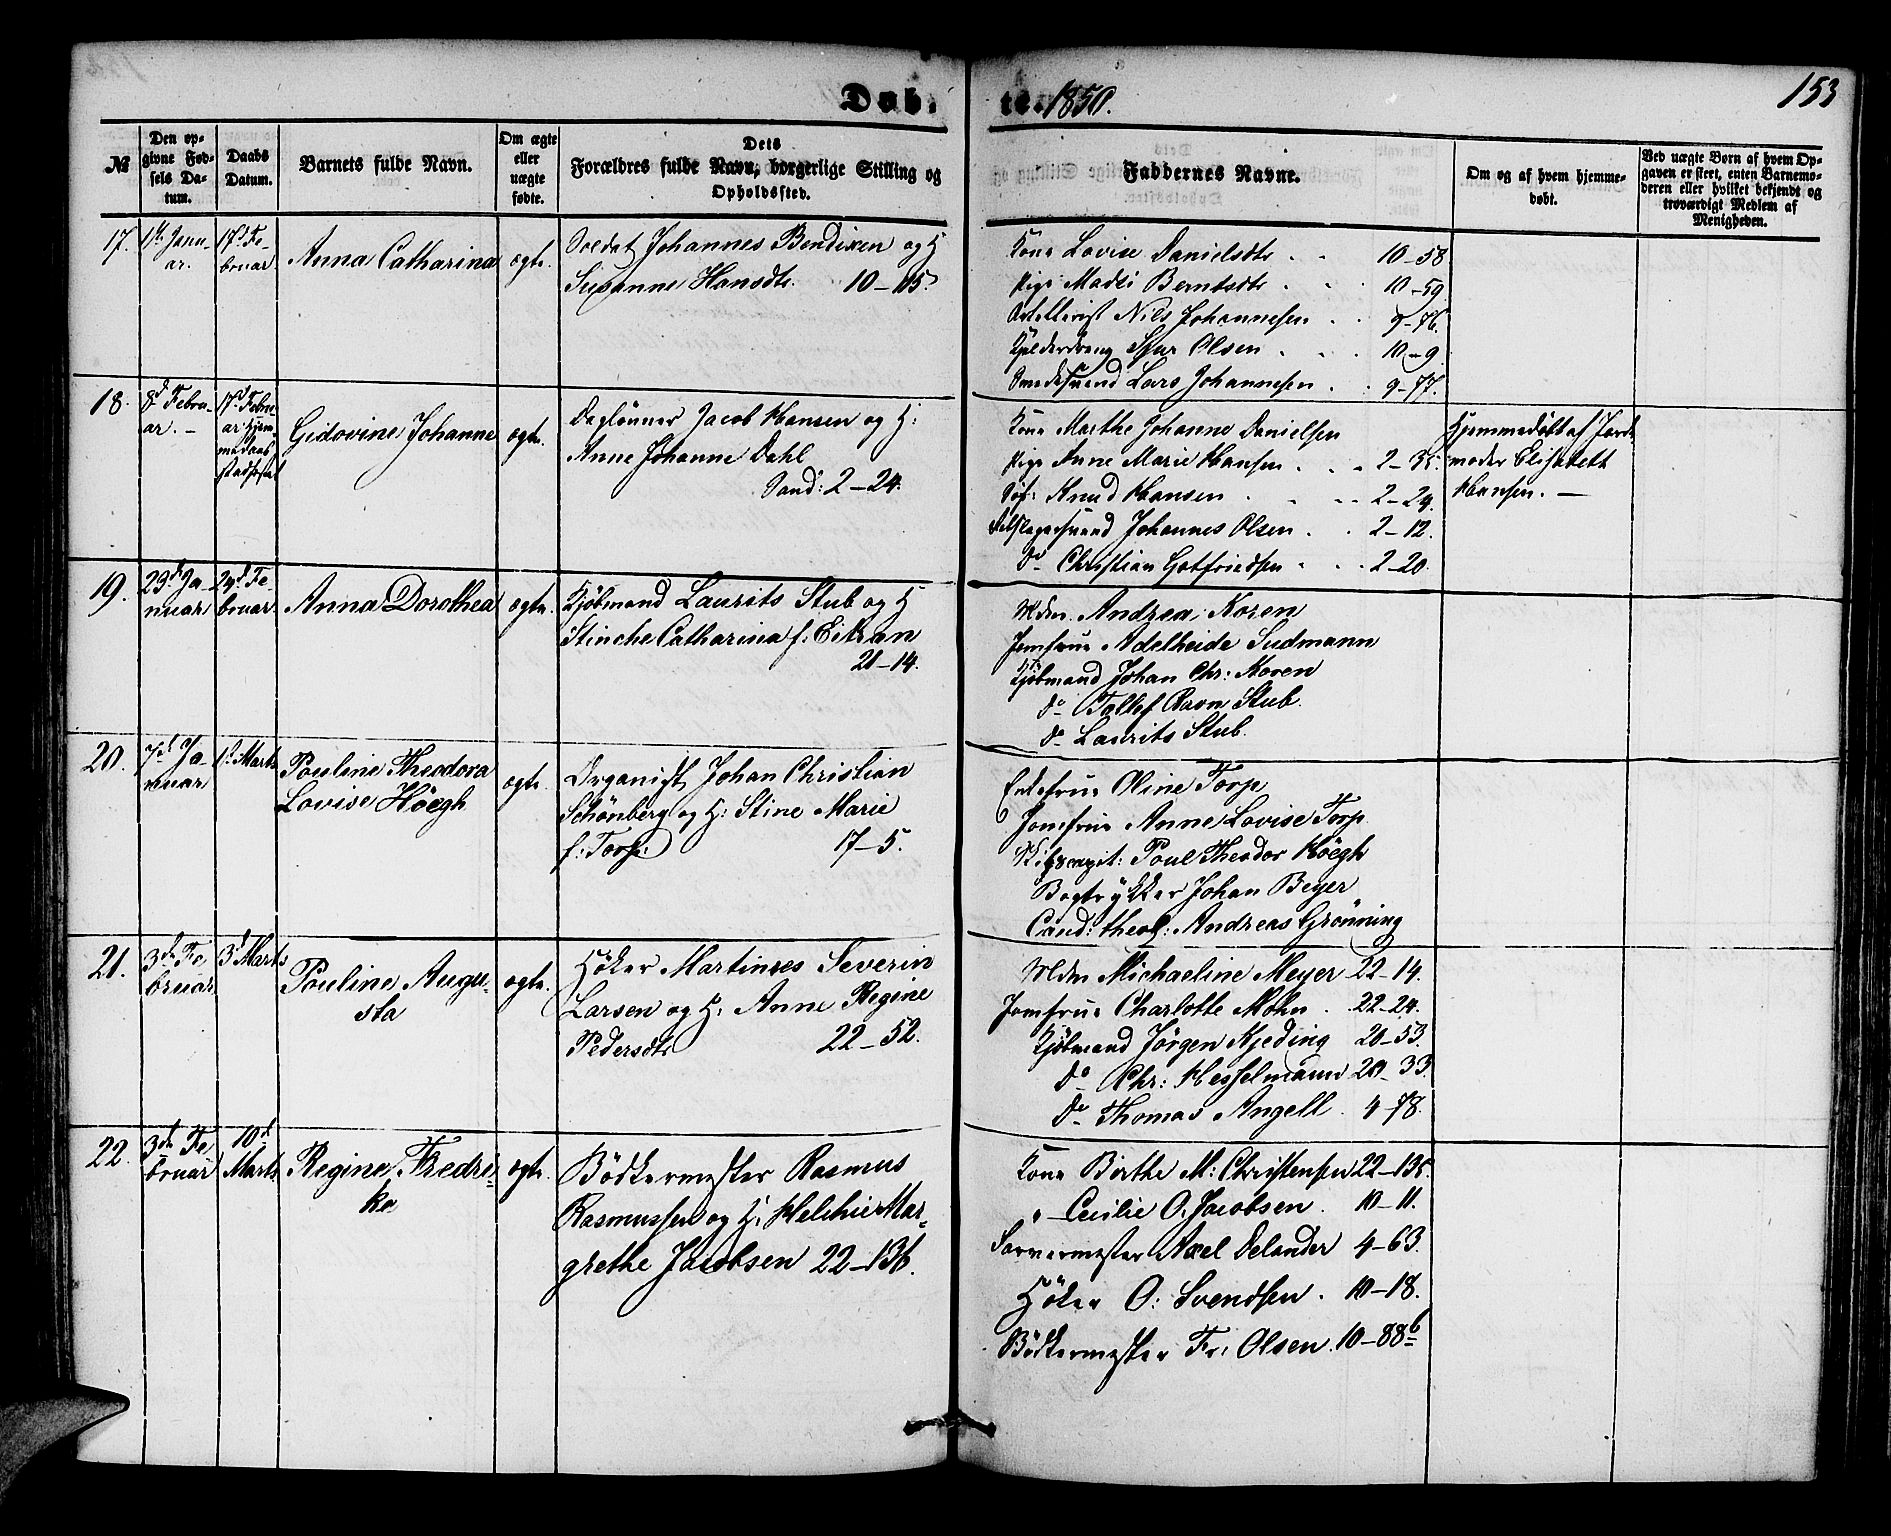 153
Døb- te. 1850.
№
Den opgivne Fødsels Datum.
Daabs Datum.
Barnets fulde Navn.
Om ægte eller uægte fødte.
Dets Forældres fulde Navn, borgerlige Stilling og Opholdssted.
Faddernes Navne.
Om og af hvem hjemmedøbt.
Ved uægte Børn af hvem Opgaven er skeet, enten Barnemoderen eller hvilket bekjendt og troværdigt Medlem af Menigheden.
17.
1ste Janu-
ar.
17d Fe-
bruar
Anna Catharina
ægte.
Soldat Johannes Bendixen og H
Susanne Hansdtr. 10–115.
Kone Lovise Danielsdtr 10–58
Pige Madsi Berntsdtr 10–59
Artillerist Nils Johannesen 9–76.
Kjelderdreng Sjur Olsen 10–9
Smedesvend Lars Johannesen 9–77.
18.
8d Febru-
ar.
17d Febru
ar Hjem-
medaab
stadfæstet
Gidovine Johanne
ægte.
Daglønner Jacob Hansen og H:
Anne Johanne Dahl
Sand: 2–24.
Kone Marthe Johanne Danielsen
Pige Anne Marie Hansen 2–35.
Søf: Knud Hansen 2–24.
Johannes Olsen 2–12.
Do Christian Gotfriedsen 2–20.
Hjemmedøbt af Jorde
moder Elisabeth
Hansen.
19.
23d Ja-
nuar
24d Fe-
bruar
Anna Dorothea
ægte.
Kjøbmand Laurits Stub og H
Stinche Catharina f. Eitran
21–14.
Mdm. Andrea Koren
Jomfrue Adelheide Sudmann
Kjøbmand Johan Chr: Koren
Do Tollef Ravn Stub.
Do Laurits Stub.
20.
7d Ja-
nuar
1d Marts
Pauline Theodora
Lovise Höegh
ægte.
Organist Johan Christian
Schönberg og H: Stine Marie
f: Torp. 17–5.
Enkefrue Oline Torp
Jomfrue Anne Lovise Torp.
Skibscapit: Poul Theodor Höegh
Bogtrykker Johan Beyer
Cand: theol: Andreas Grønning
21.
3die Fe
bruar,
3d Marts
Pauline Augu-
sta
ægte.
Höker Martinus Severin
Larsen og H, Anne Regine
Pedersdtr 22–52.
Mdm Michaeline Meyer 22–14.
Jomfrue Charlotte Mohn 22–24.
Kjøbmand Jørgen Kjeding 20–53.
Do Chr: Hesselmann 20–33
Do Thomas Angell 4–78.
22.
3die Fe
bruar
10d
Marts
Regine Fredri-
ka
ægte.
Bödkermester Rasmus
Rasmussen og H, Helchie Mar-
grethe Jacobsen 22–136.
Kone Birthe M: Christensen 22–135.
" Cecilie O. Jacobsen 10–11.
Farvermester Axel Delander 4–63.
Höker O: Svendsen 10–18.
Bödkermester Fr. Olsen 10–88b